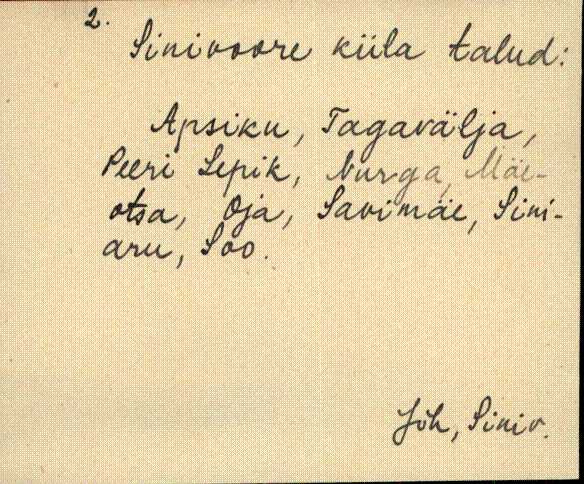 2.
Sinivoore küla talud:
Apsiku, Tagavälja,
Peeri Lepik, Nurga, Mäe-
otsa, Oja, Savimäe, Sini-
aru, Soo.
Jõh, Siniv.